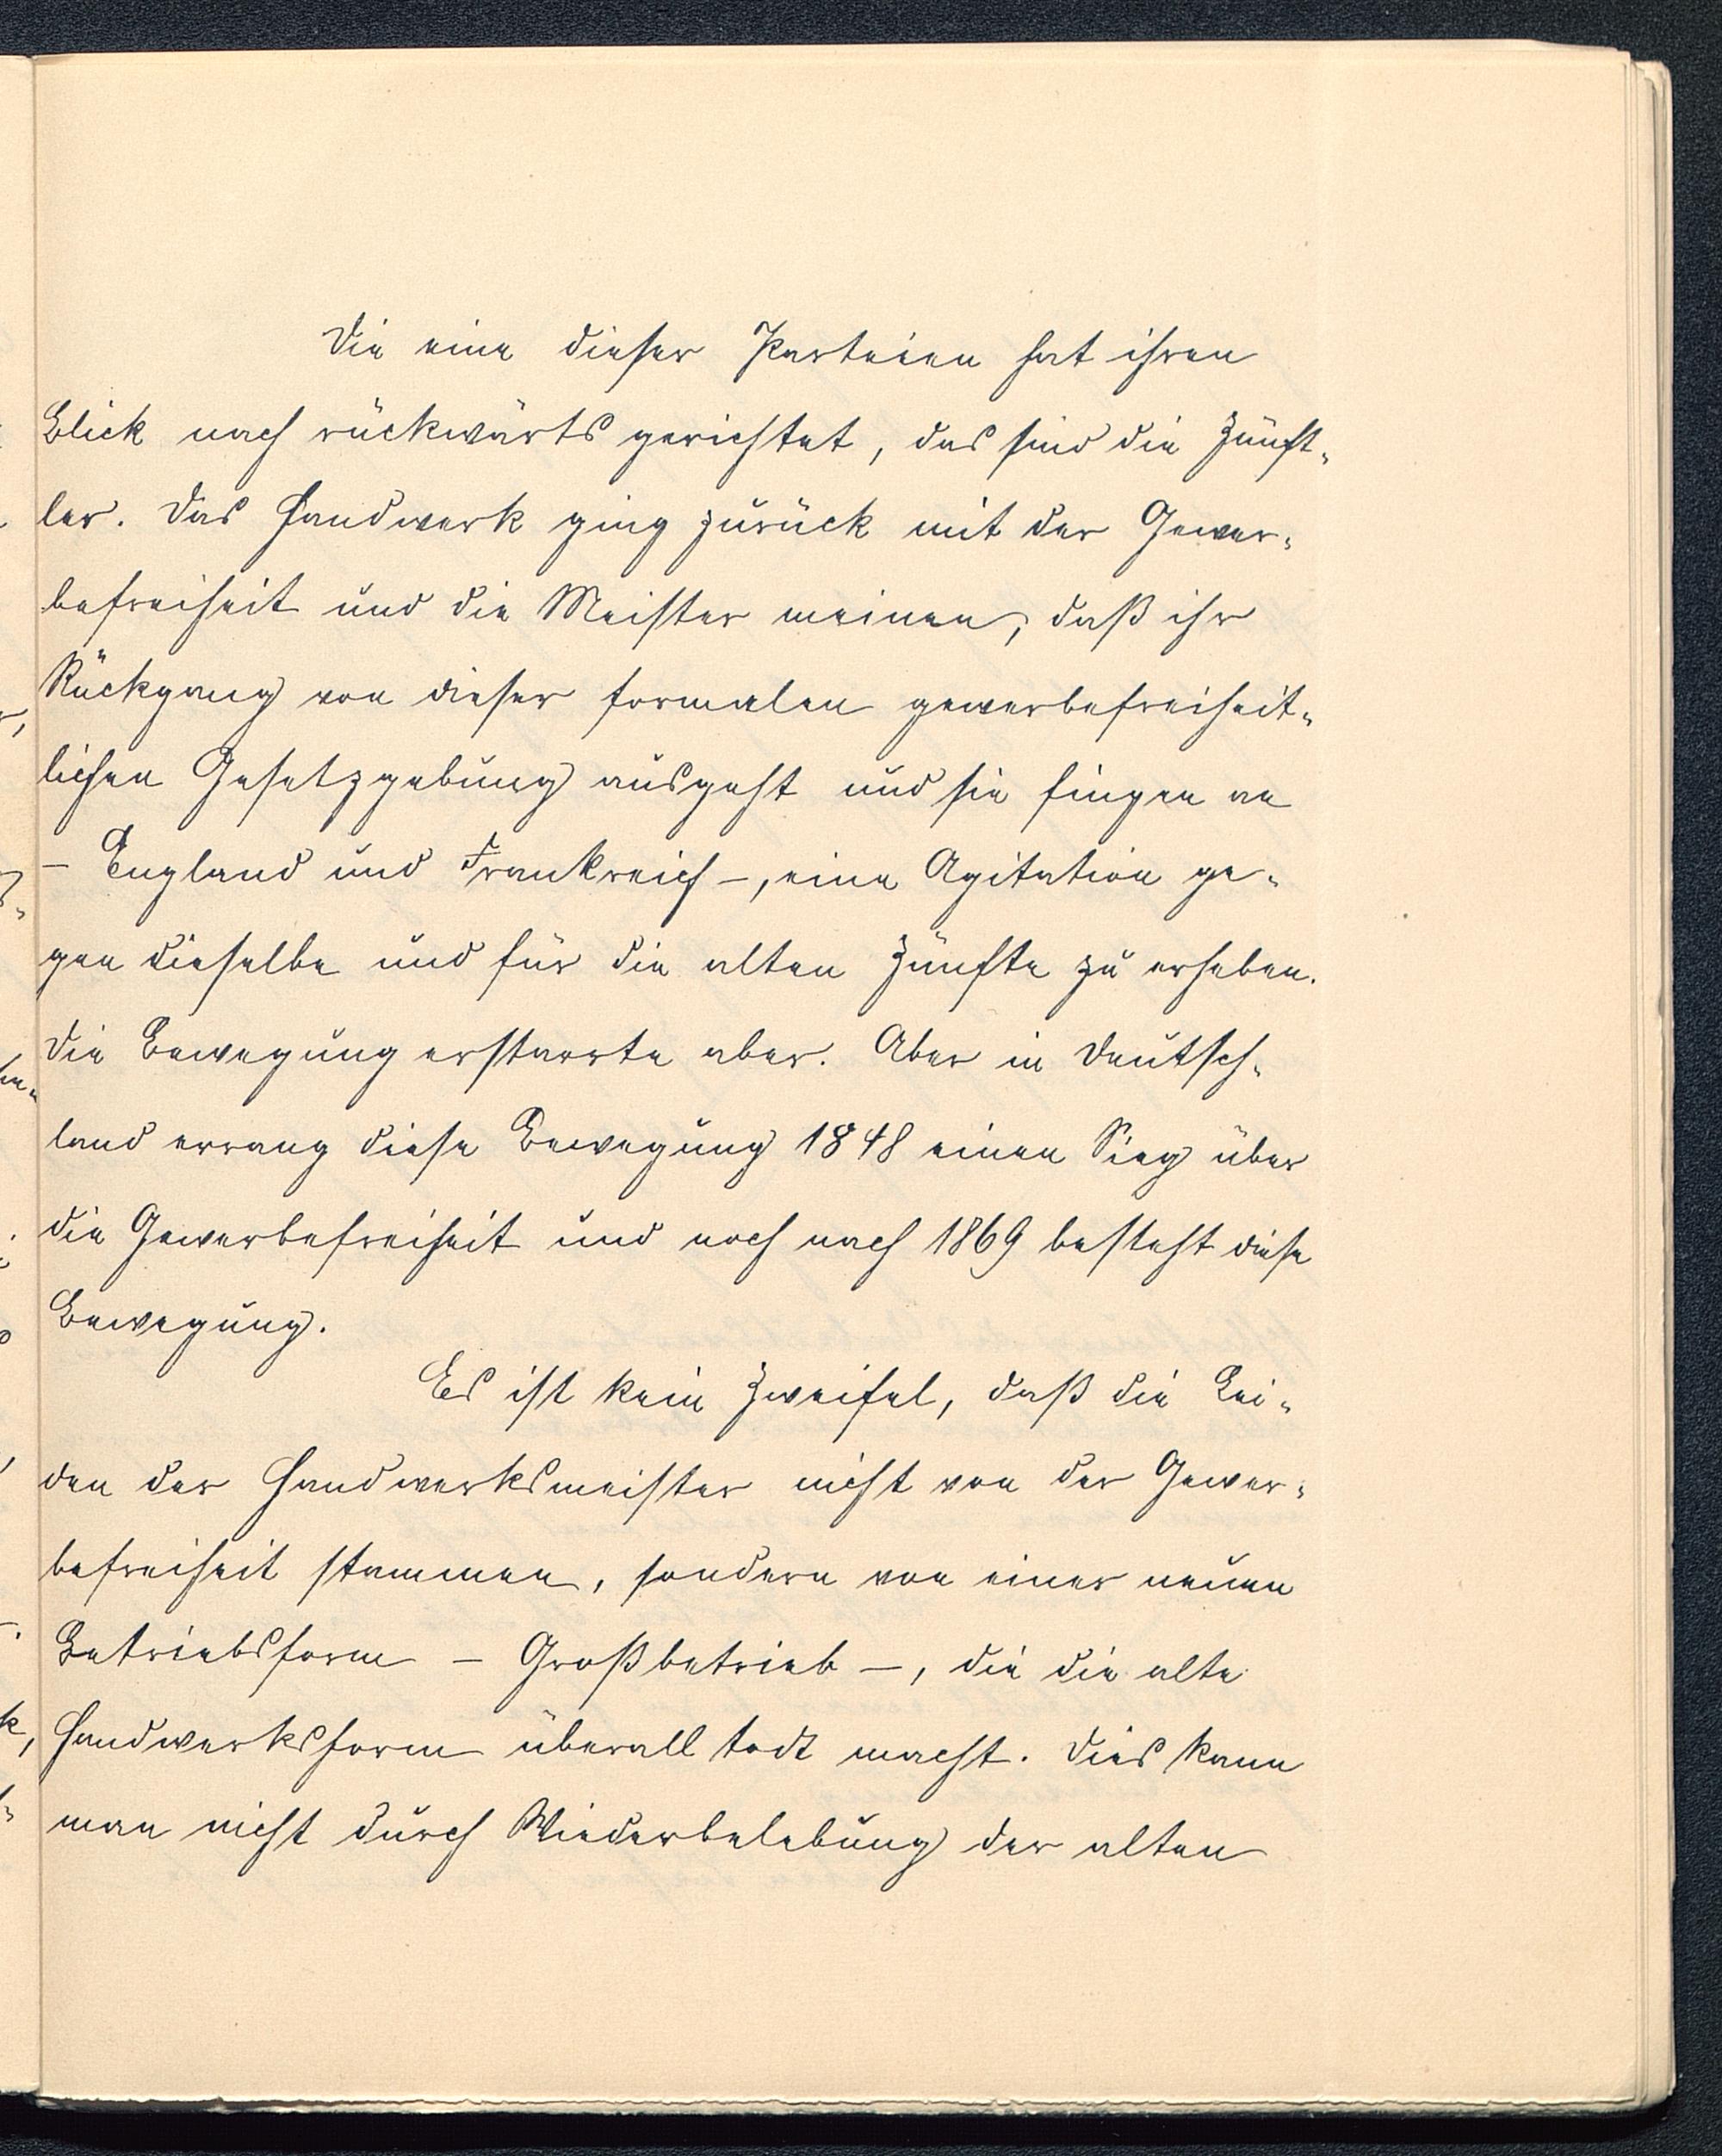 Die eine dieser Parteien hat ihren
Blick nach rückwärts gerichtet, das sind die Zünft-
ler. Das Handwerk ging zurück mit der Gewer-
befreiheit und die Meister meinen, daß ihr
Rückgang von dieser formalen gewerbefreiheit-
lichen Gesetzgebung ausgeht und sie fingen an
– England und Frankreich –, eine Agitation ge-
gen dieselbe und für die alten Zünfte zu erheben.
Die Bewegung erstarrte aber. Aber in Deutsch-
land errang diese Bewegung 1848 einen Sieg über
die Gewerbefreiheit und noch nach 1869 besteht diese
Bewegung.
Es ist kein Zweifel, daß die Lei-
den der Handwerksmeister nicht von der Gewer-
befreiheit stammen, sondern von einer neuen
Betriebsform – Großbetrieb –, die die alte
Handwerksform überall todt macht. Dies kann
man nicht durch Wiederbelebung der alten